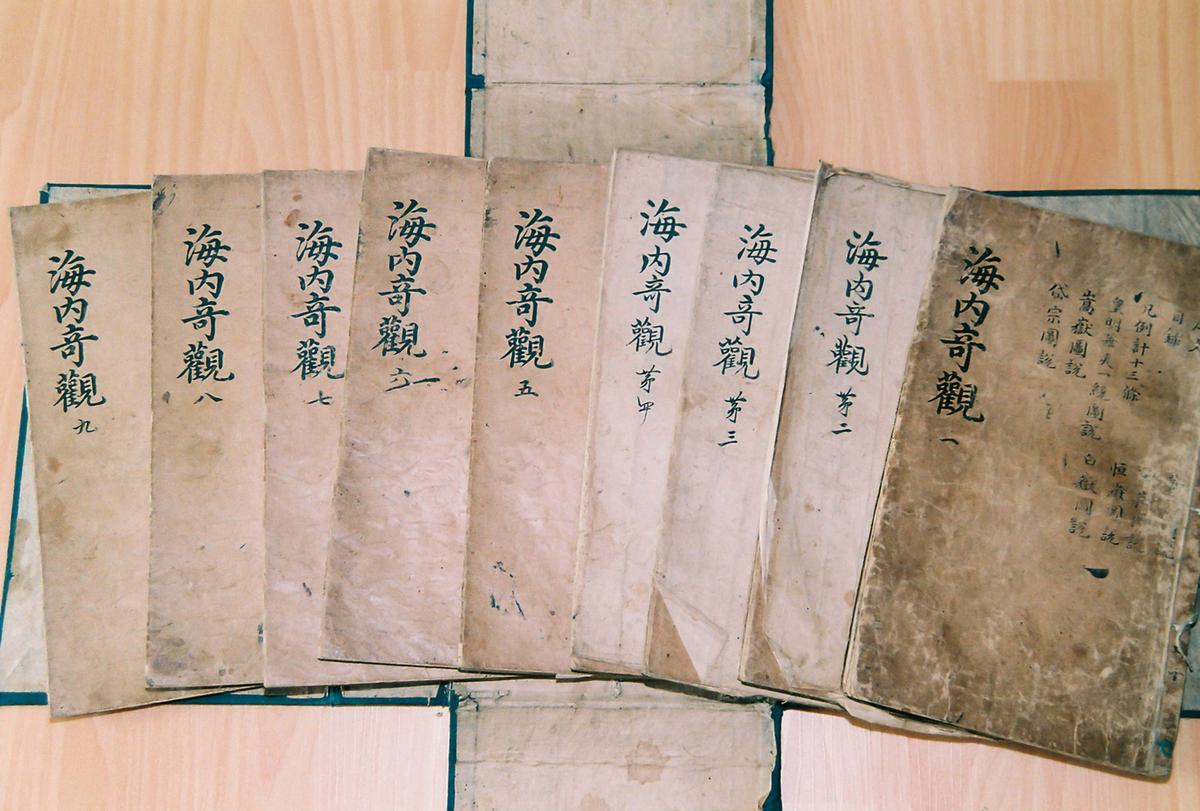 海内奇觀 一
目錄
凡例計十三條
皇明無大一統圖說
嵩嶽圖說 白嶽圖說
岱宗圖說
恒嶽圖說
海内奇觀 苐二
海内奇觀 苐三
海内奇觀 苐四
海内奇觀 五
海内奇觀 六
海内奇觀 七
海内奇觀 八
海内奇觀 九